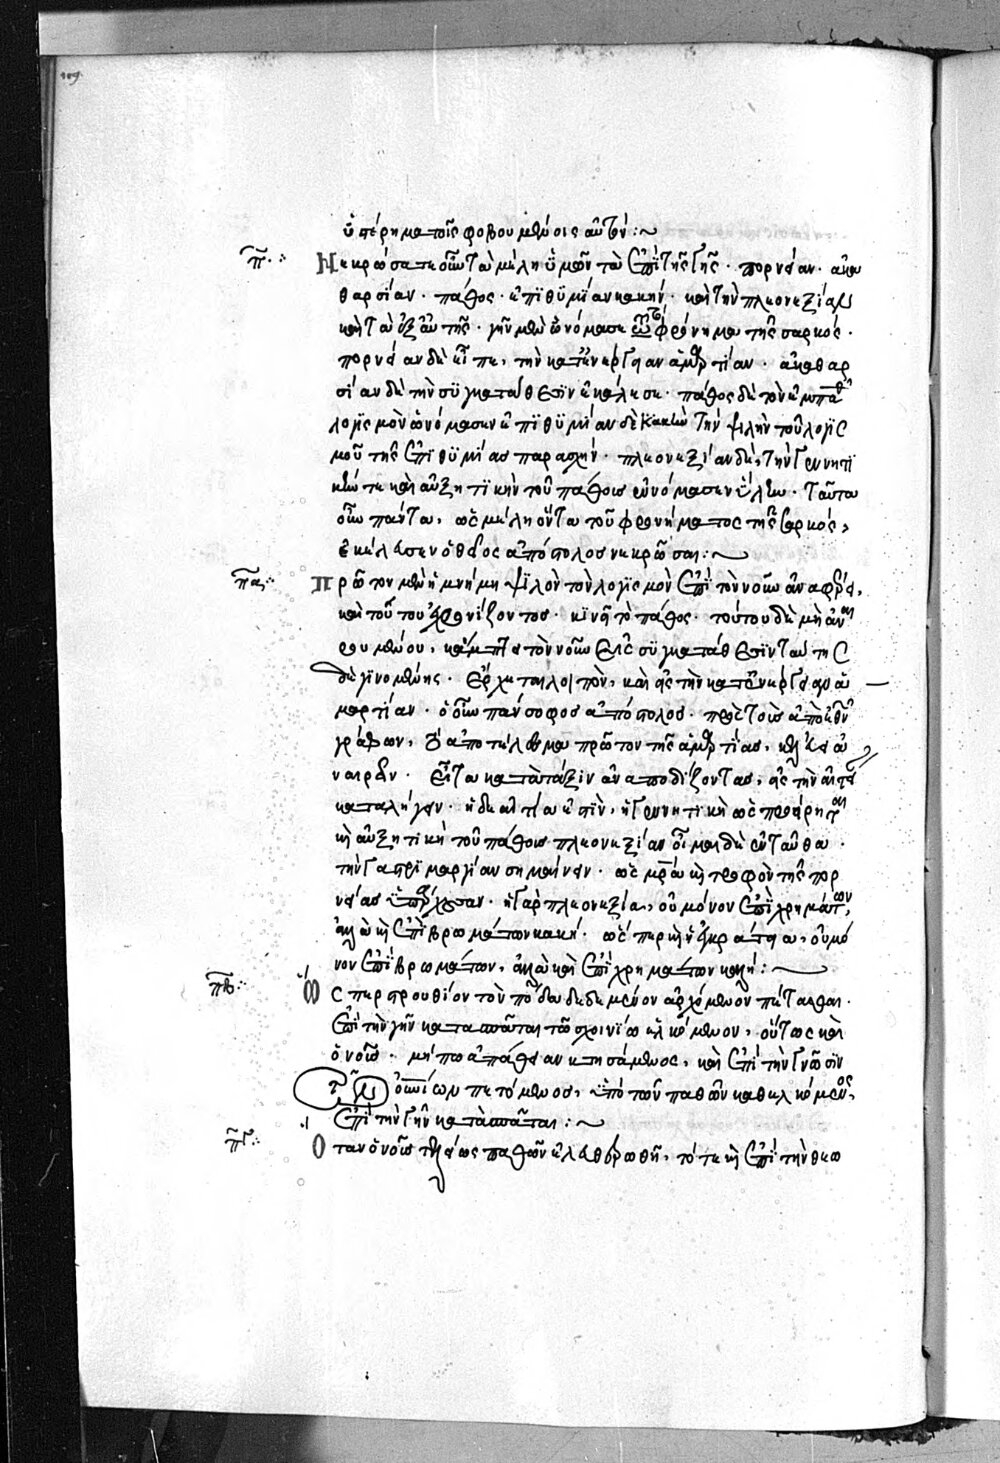 109
ὑστέρημα τοῖς φοβουμένοις αὐτόν:~
πʹ Νεκρώσατε οὖν τὰ μέλη ὑμῶν τὰ ἐπὶ τῆς γῆς· πορνείαν· ἀκα
θαρσίαν· πάθος· ἐπιθυμίαν κακήν· καὶ τὴν πλεονεξίαν
καὶ τὰ ἑξῆς· γῆν μὲν ὠνόμασε τὸ φρόνημα τῆς σαρκός·
πορνείαν δὲ εἶπε, τὴν κατ' ἐνέργειαν ἁμαρτίαν· ἀκαθαρ
σίαν δὲ τὴν συγκατάθεσιν ἐκάλεσε· πάθος δὲ τὸν ἐμπαθῆ
λογισμὸν ὠνόμασεν ἐπιθυμίαν δὲ κακὴν τὴν ψιλὴν τοῦ λογισ
μοῦ τῆς ἐπιθυμίας παρασχήν· πλεονεξίαν δὲ, τὴν γεννητι
κήν τε καὶ αὐξητικὴν τοῦ πάθους ὠνόμασεν ὕλην· ταῦτα
οὖν πάντα, ὡς μέλη ὄντα τοῦ φρονήματος τῆς σαρκός,
ἐκέλευσεν ὁ θεῖος ἀπόστολος νεκρῶσαι:~
παʹ Πρῶτον μὲν ἡ μνήμη ψιλὸν τὸν λογισμὸν ἐπὶ τὸν νοῦν ἀναφέρει,
καὶ τούτου χρονίζοντος· κινεῖται τὸ πάθος· τούτου δὲ μὴ ἀναι
ρουμένου, κάμπτει τὸν νοῦν εἰς συγκατάθεσιν ταύτης
δὲ γινομένης· ἔρχεται λοιπὸν, καὶ εἰς τὴν κατ' ἐνέργειαν ἁ
μαρτίαν· ὁ οὖν πάνσοφος ἀπόστολος· πρὸς τοὺς ἀπὸ ἐθνῶν
γράφων, τὸ ἀποτέλεσμα πρῶτον τῆς ἁμαρτίας, κελεύει ἀ
ναιρεῖν· εἶτα κατὰ τάξιν ἀναποδίζοντας, εἰς τὴν αἰτίαν
καταλήγειν· ἡ δὲ αἰτία ἐστὶν, ἡ γεννητικὴ ὡς προείρηται
καὶ αὐξητικὴ τοῦ πάθους πλεονεξία οἶμαι δὲ ἐνταῦθα·
τὴν γαστριμαργίαν σημαίνειν· ὡς μητέρα καὶ τροφὸν τῆς πορ
νείας ὑπάρχουσαν· ἡ γὰρ πλεονεξία, οὐ μόνον ἐπὶ χρημάτων,
ἀλλὰ καὶ ἐπὶ βρωμάτων κακή· ὥσπερ καὶ ἡ ἐγκράτεια, οὐ μό
νον ἐπὶ βρωμάτων, ἀλλὰ καὶ ἐπὶ χρημάτων καλή:~
πβʹ Ὥσπερ στρουθίον τὸν πόδα δεδεμένον ἀρχόμενον πέτασθαι·
ἐπὶ τὴν γῆν κατασπᾶται τῷ σχοινίῳ ἑλκόμενον, οὕτως καὶ
ὁ νοῦς· μήπω ἀπάθειαν κτησάμενος, καὶ ἐπὶ τὴν γνῶσιν
τῶν οὐρανίων πετόμενος, ὑπὸ τῶν παθῶν καθελκόμενος,
ἐπὶ τὴν γῆν κατασπᾶται:~
πγʹ Ὅταν ὁ νοῦς τελείως παθῶν ἐλευθερωθῇ, τότε καὶ ἐπὶ τὴν θεω